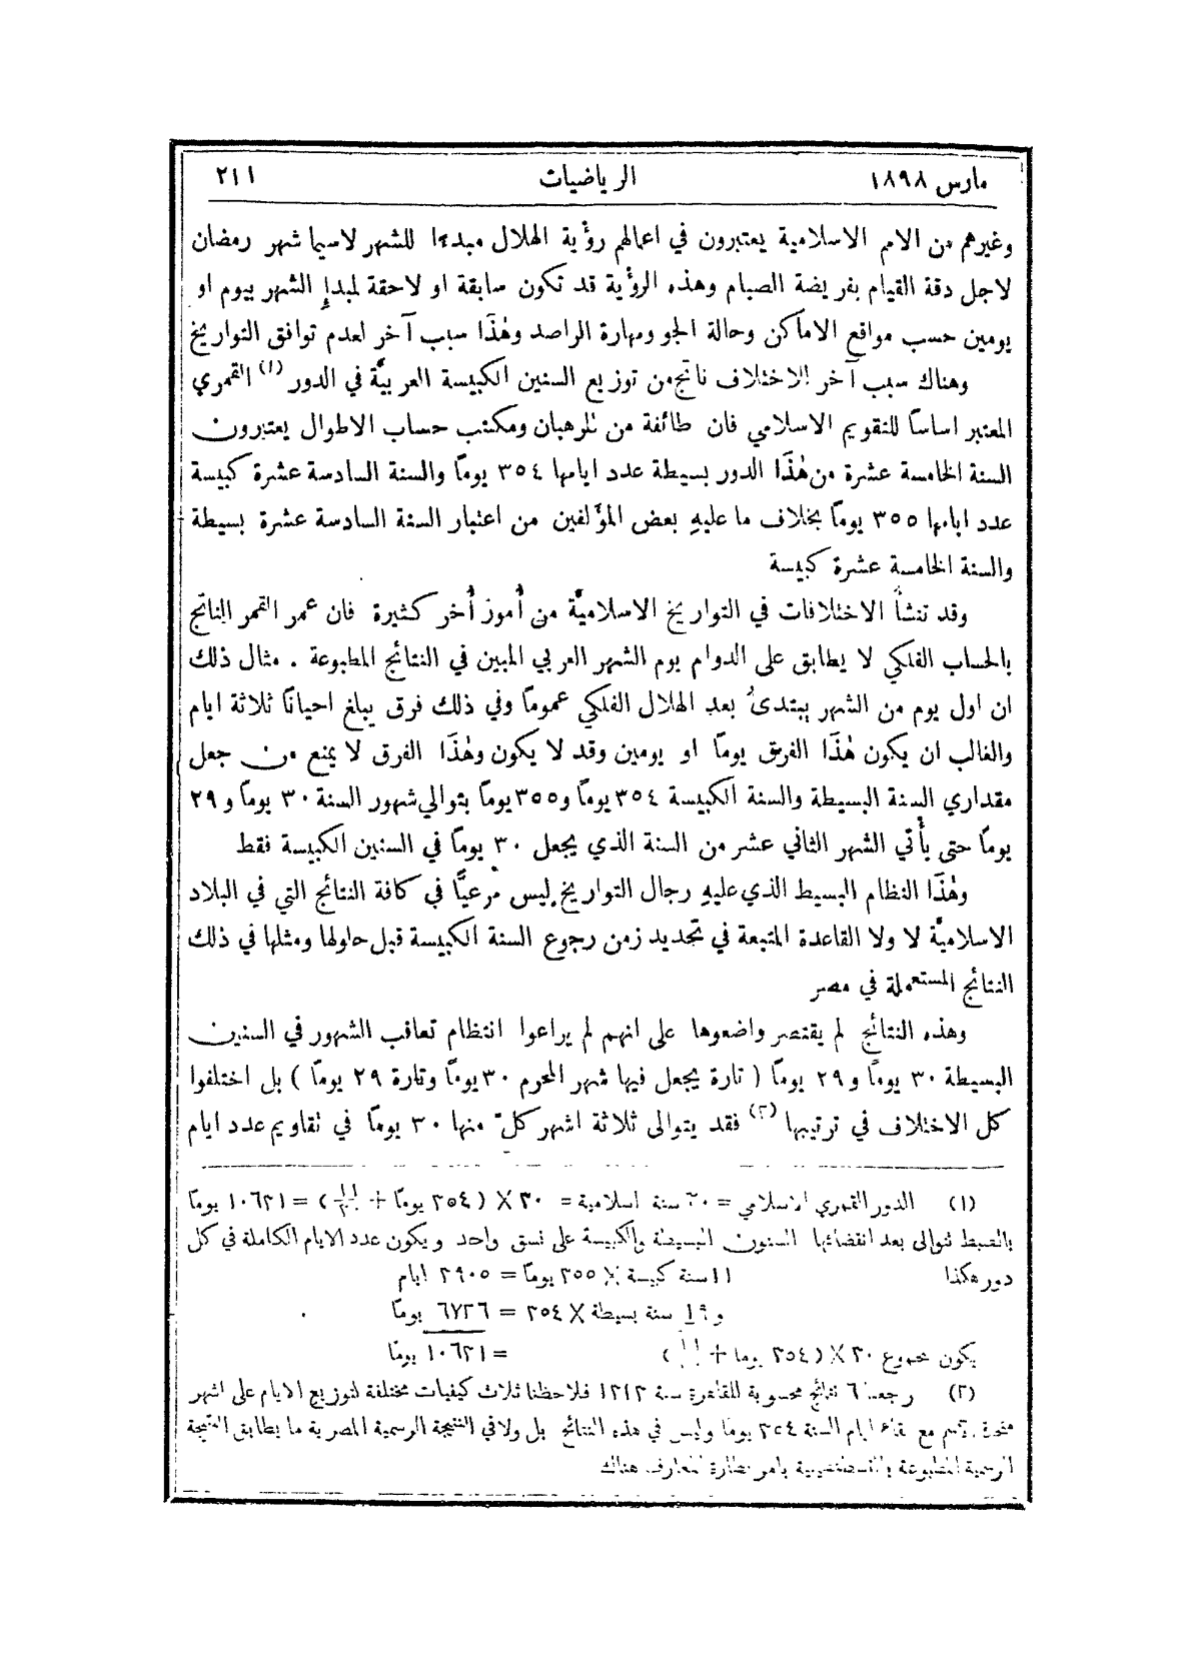 مارس ١٨٩٨ الرياضيات ٢١١
وغيرهم من الامم الاسلامية يعتبرون في اعمالهم رؤية الهلال مبدءًا للشهر لاسيما شهر رمضان
لاجل دقة القيام بفريضة الصيام وهذه الرؤية قد تكون سابقة او لاحقة لمبدإِ الشهر بيوم او
يومين حسب مواقع الاماكن وحالة الجو ومهارة الراصد وهٰذَا سبب آخر لعدم توافق التواريخ
وهناك سبب آخر للاختلاف ناتج من توزيع السنين الكبيسة العربيَّة في الدور (١) القمري
المعتبر اساسًا للتقويم الاسلامي فان طائفة من الرهبان ومكتب حساب الاطوال يعتبرون
السنة الخامسة عشرة من هٰذَا الدور بسيطة عدد ايامها ٣٥٤ يومًا والسنة السادسة عشرة كبيسة
عدد ايامها ٣٥٥ يومًا بخلاف ما عليهِ بعض المؤَلفين من اعتبار السنة السادسة عشرة بسيطة
والسنة الخامسة عشرة كبيسة
وقد تنشأُ الاختلافات في التواريخ الاسلاميَّة من أُمور أُخر كثيرة فان عمر القمر الناتج
بالحساب الفلكي لا يطابق على الدوام يوم الشهر العربي المبين في النتائج المطبوعة . مثال ذلك
ان اول يوم من الشهر يبتدئُ بعد الهلال الفلكي عمومًا وفي ذلك فرق يبلغ احيانًا ثلاثة ايام
والغالب ان يكون هٰذَا الفرق يومًا او يومين وقد لا يكون وهٰذَا الفرق لا يمنع من جعل
مقداري السنة البسيطة والسنة الكبيسة ٣٥٤ يومًا و٣٥٥ يومًا بتوالي شهور السنة ٣٠ يومًا و ٢٩
يومًا حتى يأْتي الشهر الثاني عشر من السنة الذي يجعل ٣٠ يومًا في السنين الكبيسة فقط
وهٰذَا النظام البسيط الذي عليهِ رجال التواريخ ليس مرعيًّا في كافة النتائج التي في البلاد
الاسلاميَّة لا ولا القاعدة المتبعة في تحديد زمن رجوع السنة الكبيسة قبل حلولها ومثلها في ذلك
النتائج المستعملة في مصر
وهذه النتائج لم يقتصر واضعوها على انهم لم يراعوا انتظام تعاقب الشهور في السنين
البسيطة ٣٠ يومًا و ٢٩ يومًا ( تارة يجعل فيها شهر المحرم ٣٠ يومًا وتارة ٢٩ يومًا ) بل اختلفوا
كل الاختلاف في ترتيبها (٢) فقد يتوالى ثلاثة اشهر كلّ منها ٣٠ يومًا في تقاويم عدد ايام
(١) الدور القمري الاسلامي = ٣٠ سنة اسلامية = ٣٠ × (٣٥٤ يومًا + ١١/٣٠) = ١٠٦٣١ يومًا
بالضبط تتوالى بعد انقضائها السنون البسيطة والكبيسة على نسق واحد ويكون عدد الايام الكاملة في كل
دور هكذا ١١ سنة كبيسة × ٣٥٥ يومًا = ٣٩٠٥ ايام
و ١٩ سنة بسيطة × ٣٥٤ = ٦٧٢٦ يومًا
يكون مجموع ٣٠ × (٣٥٤ يوما + ) = ١٠٦٣١ يومًا
(٢) رجعنا ٦ نتائج محسوبة للقاهرة سنة ١٣١٢ فلاحظنا ثلاث كيفيات مختلفة لتوزيع الايام على اشهر
مع بقاء ايام السنة ٣٥٤ يومًا وليس في هذه النتائج بل ولا في النتيجة الرسمية المصرية ما يطابق النتيجة
الرسمية المطبوعة بالقسطنطينية بامر نظارة المعارف هناك